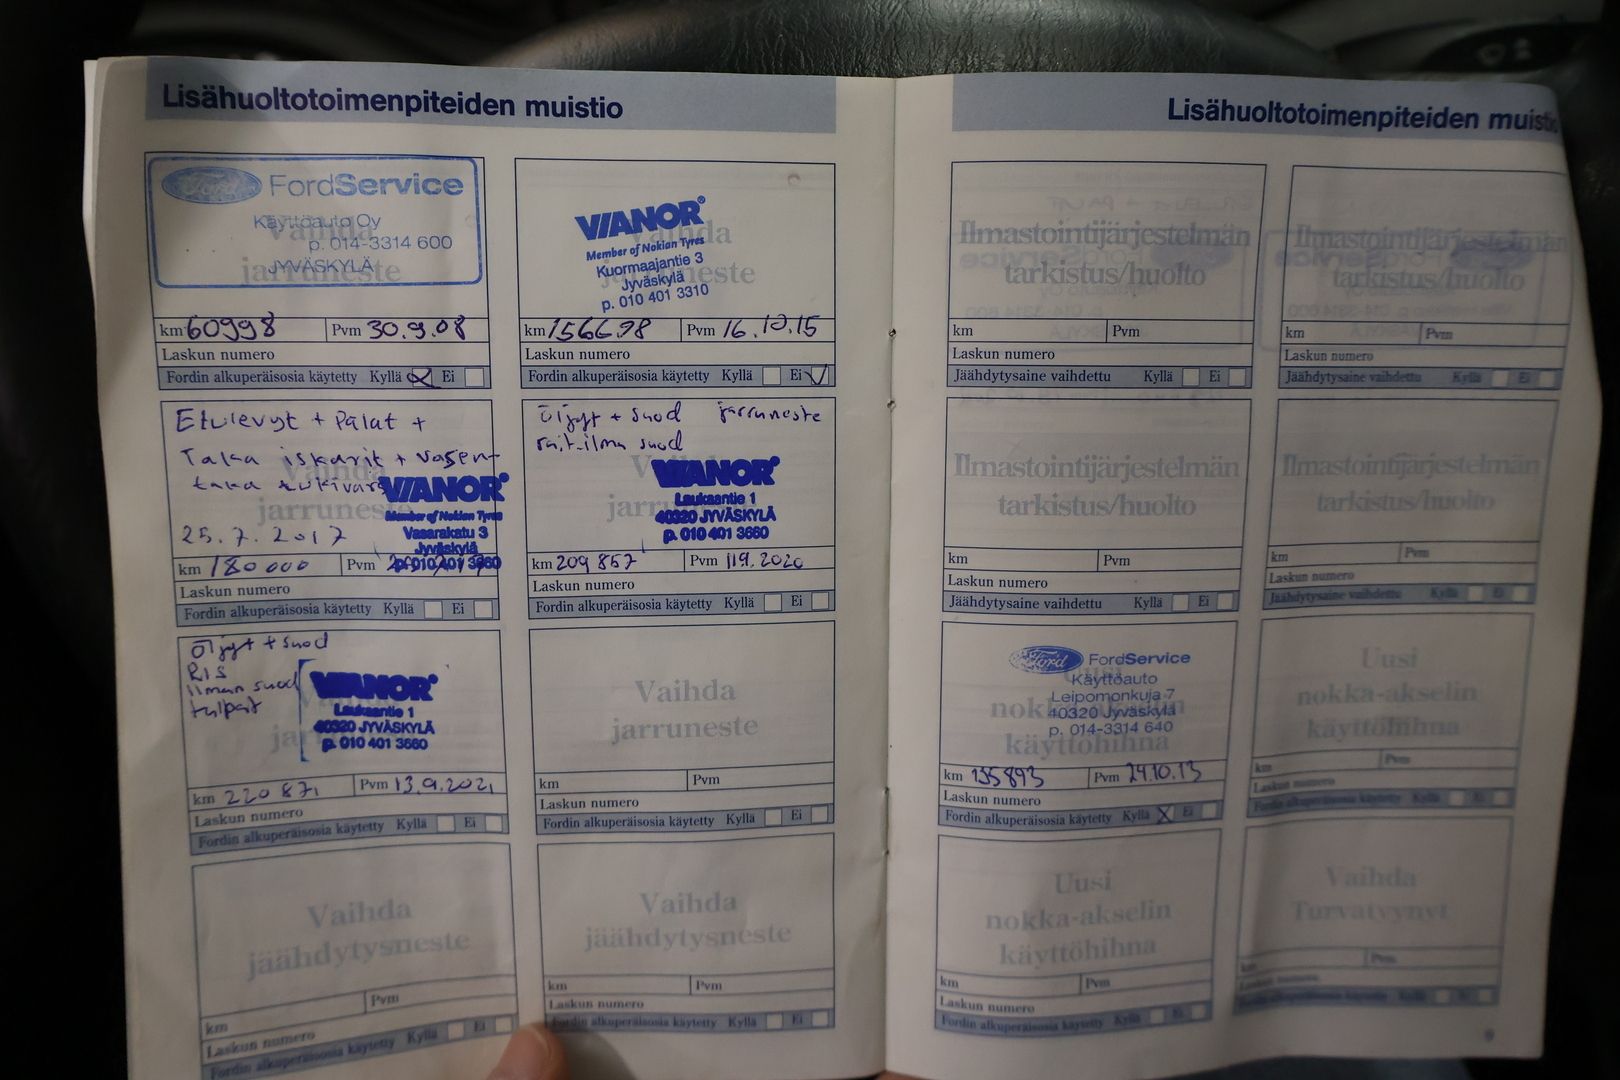 Lisähuoltotoimenpiteiden muistio
Ford FordService
Käyttöauto Oy
p. 014-3314 600
JYVÄSKYLÄ
Vaihda
jarruneste
km 60998 Pvm 30.9.08
Laskun numero
Fordin alkuperäisosia käytetty Kyllä Ei
VIANOR
Member of Nokian Tyres
Kuormaajantie 3
Jyväskylä
p. 010 401 3310
Vaihda
jarruneste
km 156698 Pvm 16.10.15
Laskun numero
Fordin alkuperäisosia käytetty Kyllä Ei
Etulevyt + Palat +
Taka iskarit + vasen-
taka
VIANOR
Member of Nokian Tyres
Vasarakatu 3
Jyväskylä
p. 010 401 3660
Vaihda
jarruneste
25.7.2017
km 180000 Pvm
Laskun numero
Fordin alkuperäisosia käytetty Kyllä Ei
öljyt + suod jarruneste
rait.ilma suod
VIANOR
Laukaantie 1
40320 JYVÄSKYLÄ
p. 010 401 3660
km 209 857 Pvm 119.2020
Laskun numero
Fordin alkuperäisosia käytetty Kyllä Ei
öljyt + suod
RIS
ilman suod
tulpat
VIANOR
Laukaantie 1
40320 JYVÄSKYLÄ
p. 010 401 3660
km 220 871 Pvm 13.9.2021
Laskun numero
Fordin alkuperäisosia käytetty Kyllä Ei
Vaihda
jarruneste
km Pvm
Laskun numero
Fordin alkuperäisosia käytetty Kyllä Ei
Vaihda
jäähdytysneste
km Pvm
Laskun numero
Fordin alkuperäisosia käytetty Kyllä Ei
Vaihda
jäähdytysneste
km Pvm
Laskun numero
Fordin alkuperäisosia käytetty Kyllä Ei
Lisähuoltotoimenpiteiden muistio
Ilmastointijärjestelmän
tarkistus/huolto
km Pvm
Laskun numero
Jäähdytysaine vaihdettu Kyllä Ei
Ilmastointijärjestelmän
tarkistus/huolto
km Pvm
Laskun numero
Jäähdytysaine vaihdettu Kyllä Ei
Ilmastointijärjestelmän
tarkistus/huolto
km Pvm
Laskun numero
Jäähdytysaine vaihdettu Kyllä Ei
Ilmastointijärjestelmän
tarkistus/huolto
km Pvm
Laskun numero
Jäähdytysaine vaihdettu Kyllä Ei
Ford FordService
Käyttöauto
Leipomonkuja 7
40320 Jyväskylä
p. 014-3314 640
Uusi
nokka-akselin
käyttöhihna
km 135893 Pvm 24.10.13
Laskun numero
Fordin alkuperäisosia käytetty Kyllä X Ei
Uusi
nokka-akselin
käyttöhihna
km Pvm
Laskun numero
Fordin alkuperäisosia käytetty Kyllä Ei
Uusi
nokka-akselin
käyttöhihna
km Pvm
Laskun numero
Fordin alkuperäisosia käytetty Kyllä Ei
Vaihda
Turvatyynyt
km Pvm
Laskun numero
Fordin alkuperäisosia käytetty Kyllä Ei
9